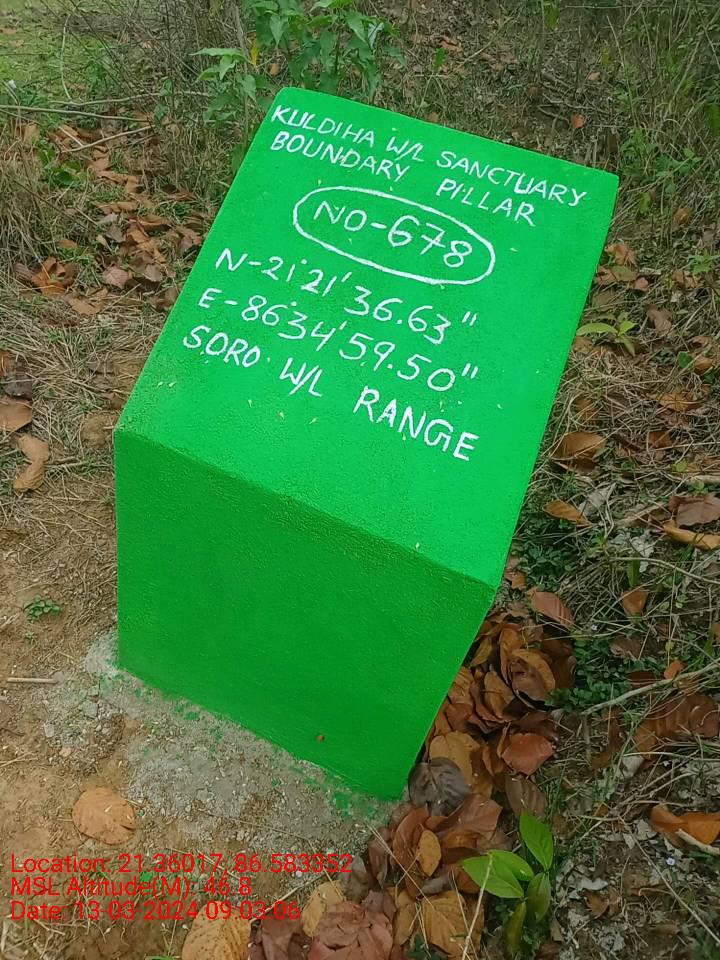 KULDIHA W/L SANCTUARY
BOUNDARY PILLAR
NO-678
N-21°21'36.63"
E-86°34'59.50"
SORO W/L RANGE
Location: 21.36017, 86.583352
MSL Altitude(M): 46.8
Date: 13-03-2024 09:03:06